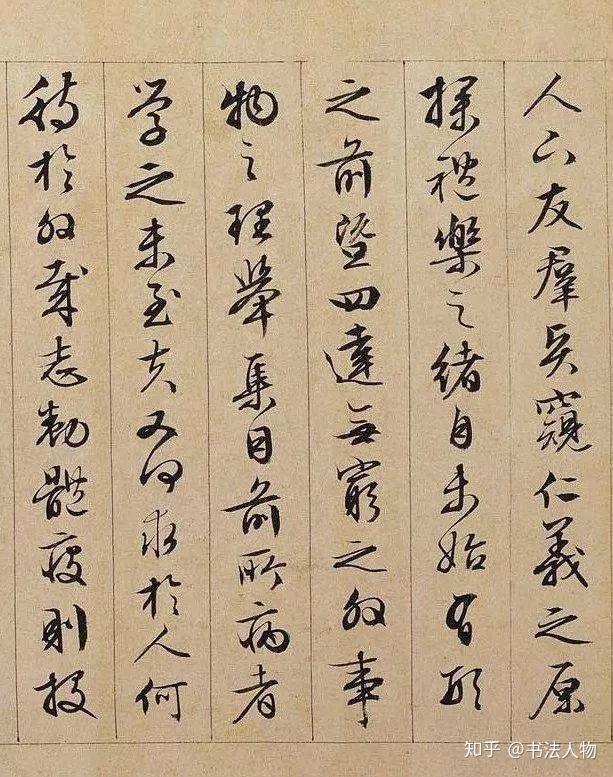 人下友羣賢窺仁義之原
探禮樂之緒自未始有形
之前暨四達無窮之外事
物之理舉集目前所病者
學之未至夫又何求於人何
待於外哉志勌體疲則投
知乎 @书法人物